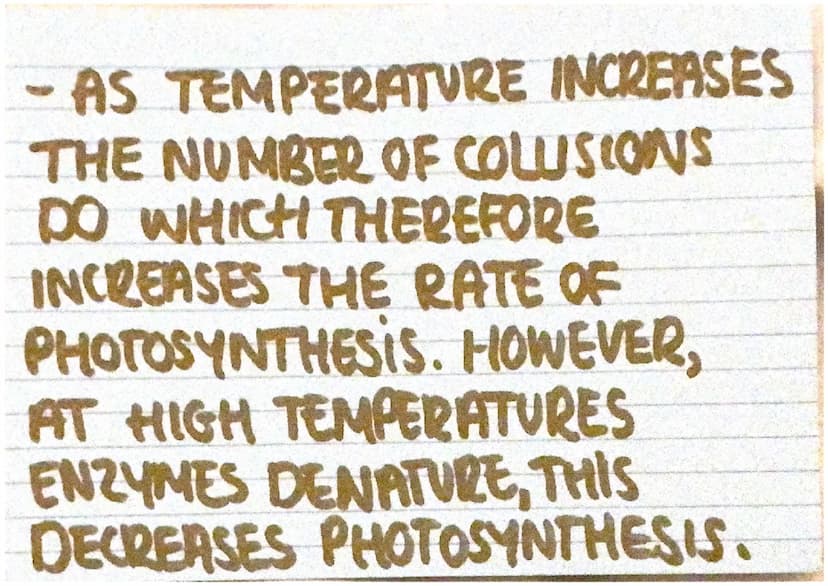 - AS TEMPERATURE INCREASES
THE NUMBER OF COLLISIONS
DO WHICH THEREFORE
INCREASES THE RATE OF
PHOTOSYNTHESIS. HOWEVER,
AT HIGH TEMPERATURES
ENZYMES DENATURE, THIS
DECREASES PHOTOSYNTHESIS.